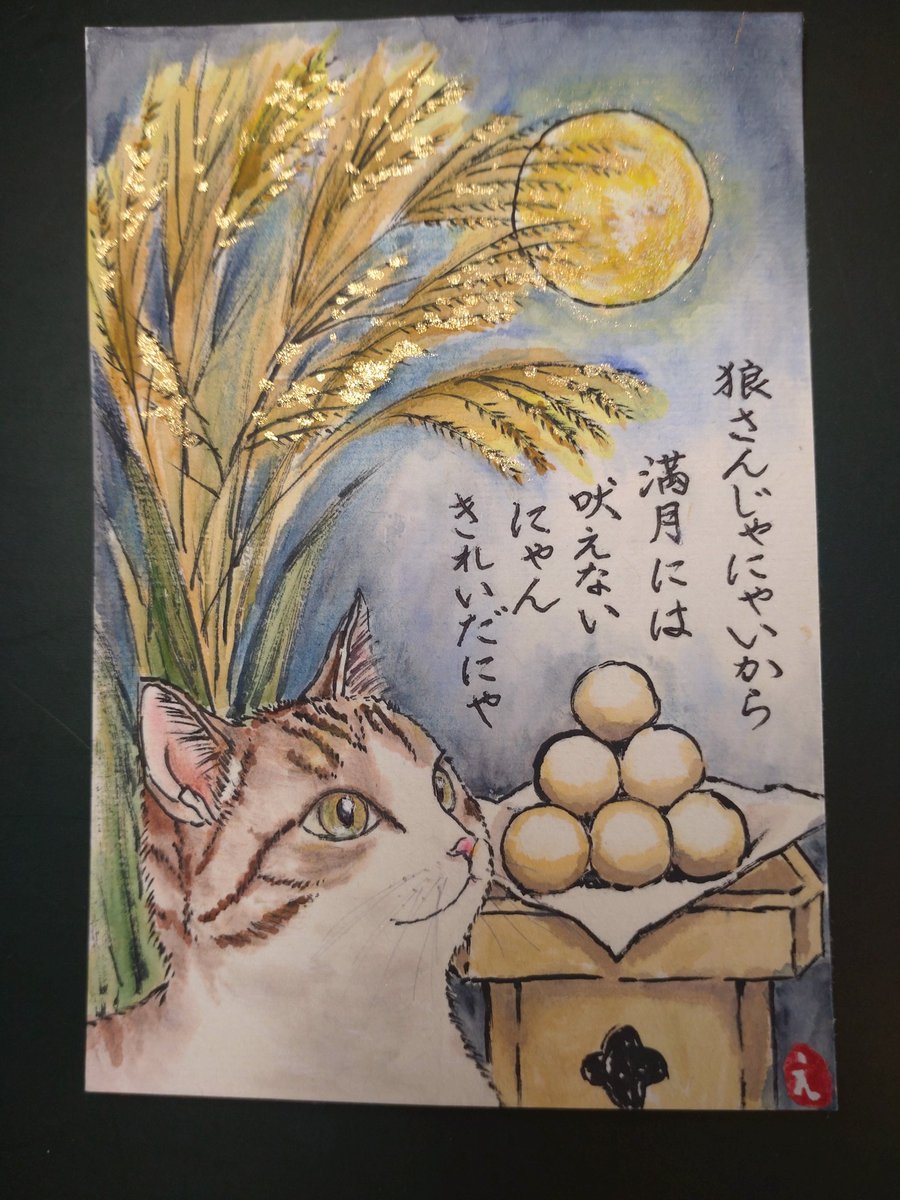 狼さんじゃにゃいから
満月には
吠えない
にゃん
きれいだにゃ
え